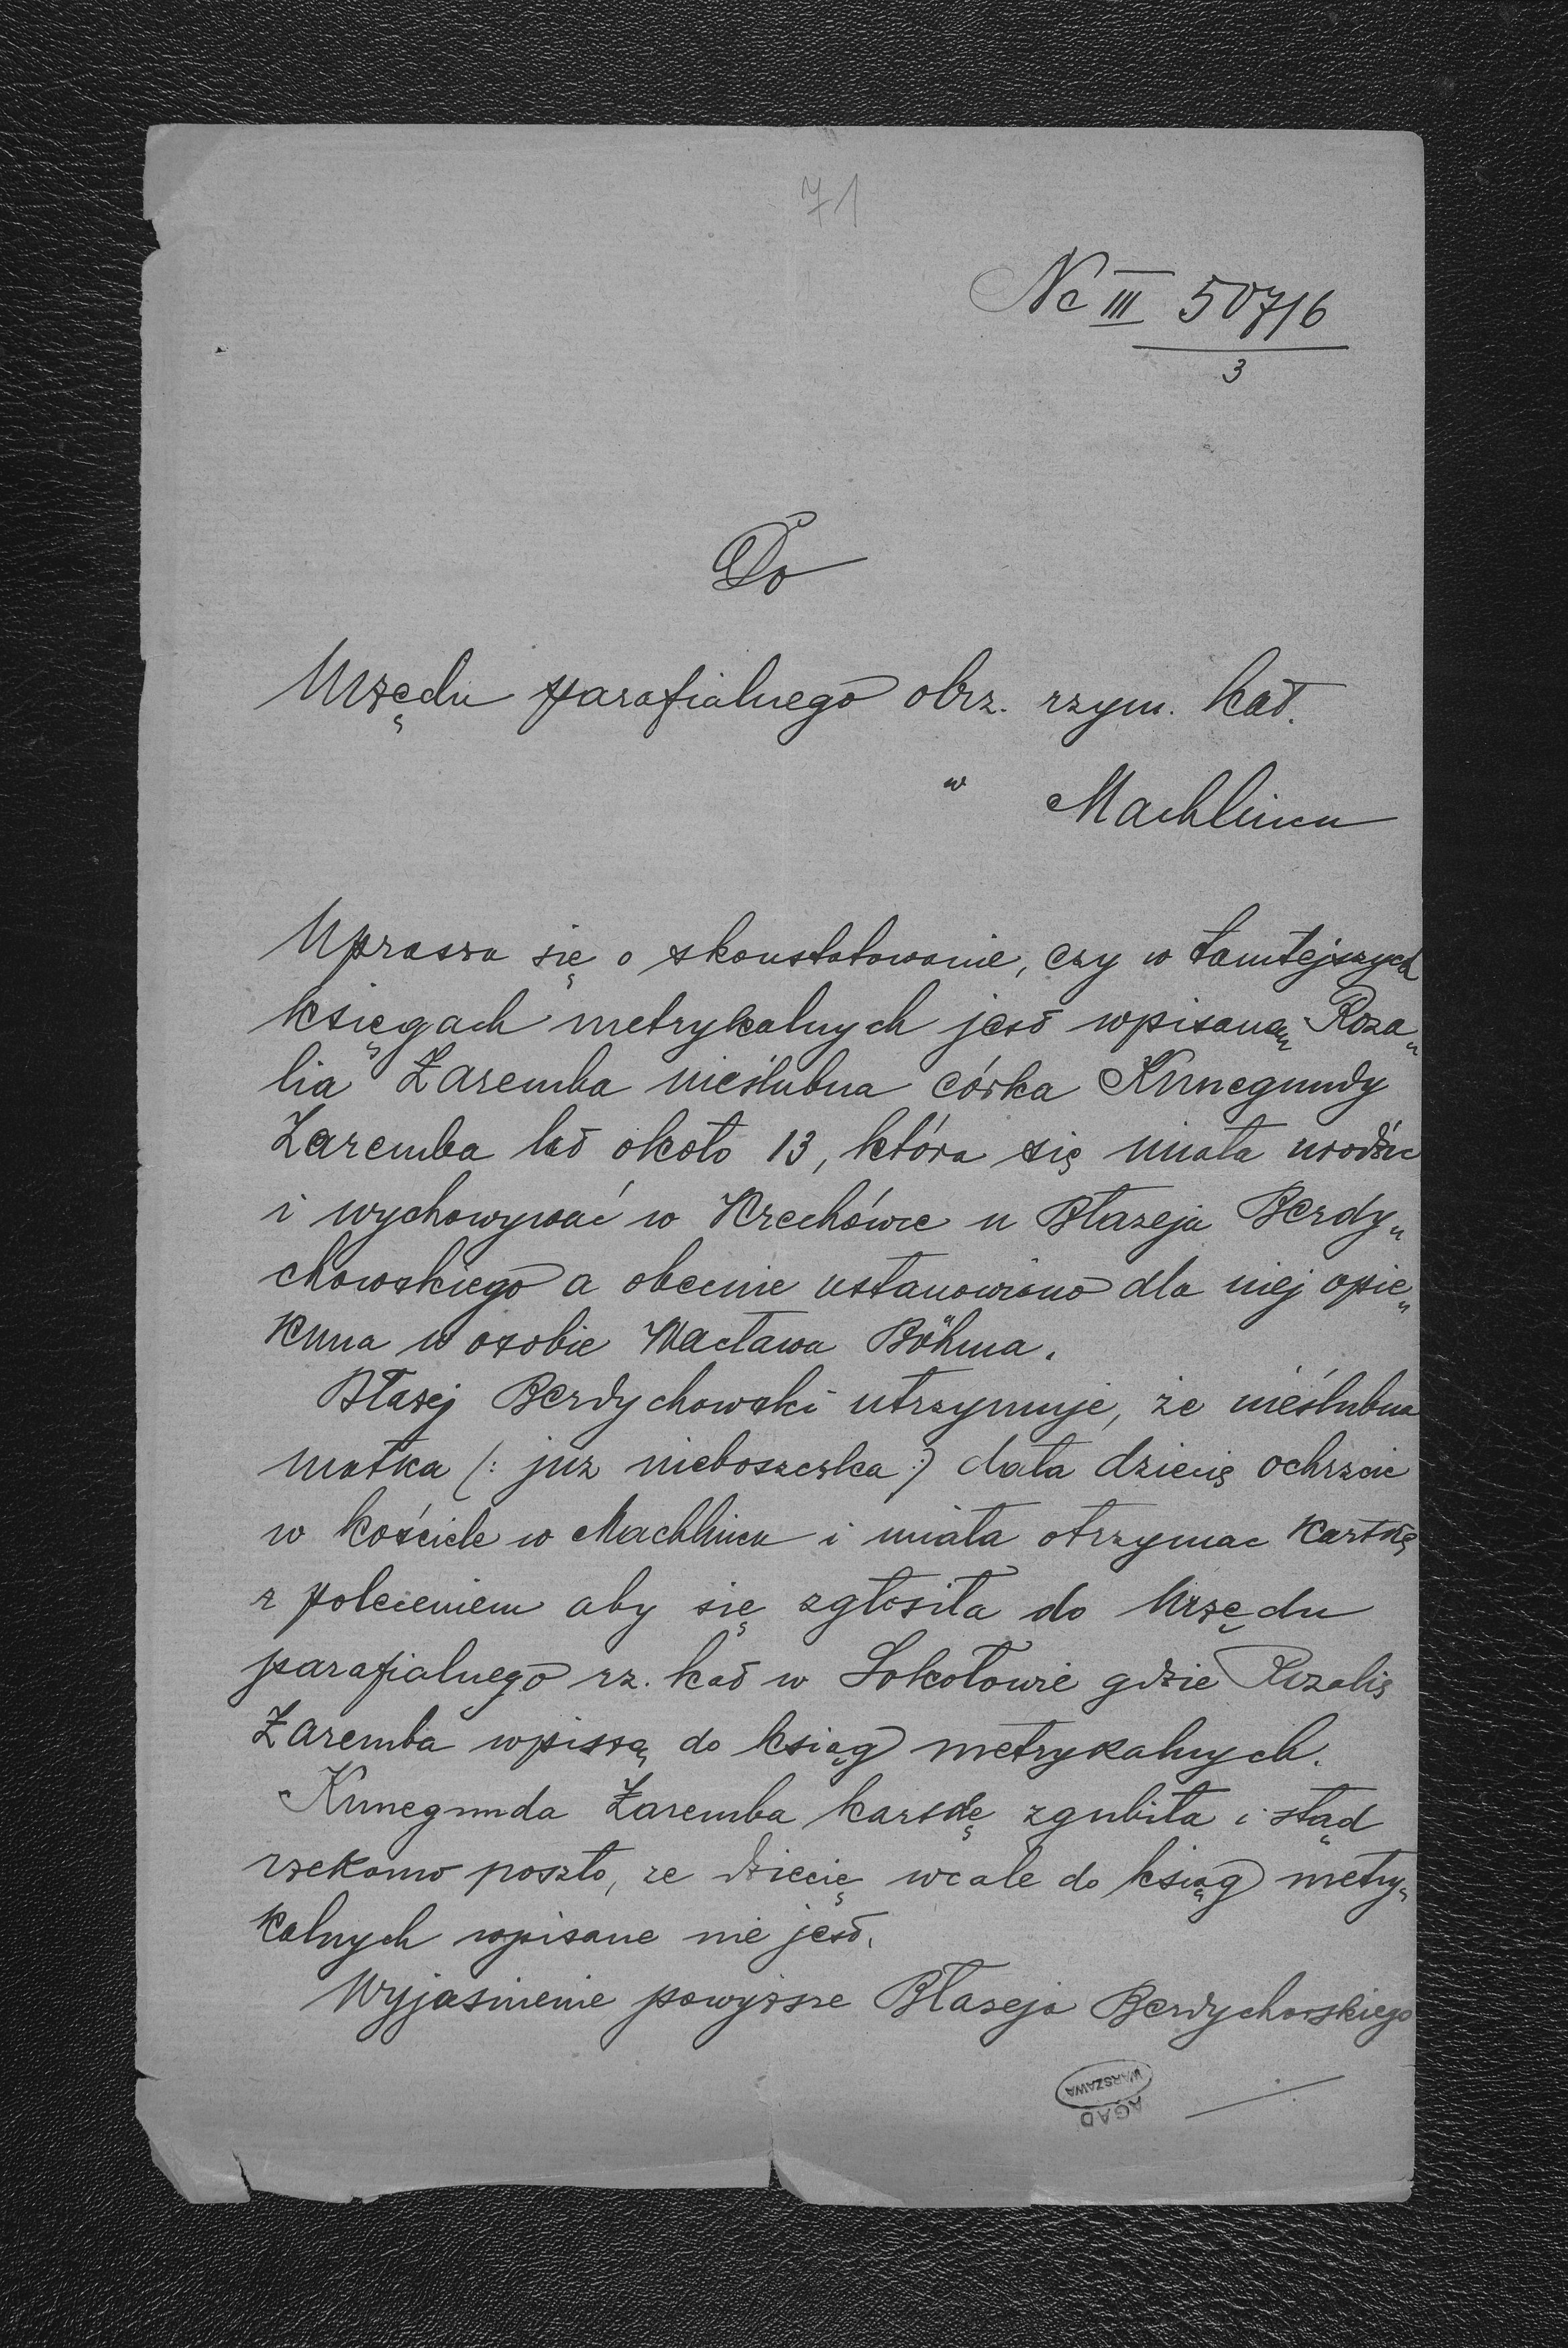 71
Nc III 507/6
3
Do
Urzędu parafialnego obrz. rzym. kat.
w Machlincu
Uprasza się o skonstatowanie, czy w tamtejszych
księgach metrykalnych jest wpisaną Roza„
lia Zaremba nieślubna córka Kunegundy
Zaremba lat około 13, która się miała urodzić
i wychowywać w Krechówce u Błażeja Berdy„
chowskiego a obecnie ustanowiono dla niej opie„
kuna w osobie Wacława Böhma.
Błażej Berdychowski utrzymuje, że nieślubna
matka (: juz nieboszczka :) dała dziecię ochrzcic
w kościele w Machlincu i miała otrzymac kartkę
z poleceniem aby się zgłosiła do Urzędu
parafialnego rz. kat w Sokołowie gdzie Rozalię
Zaremba wpiszą do ksiąg metrykalnych.
Kunegunda Zaremba kartkę zgubiła i stąd
rzekomo poszło, ze dziecię wcale do ksiąg metry„
kalnych wpisane nie jest.
Wyjasnienie powyższe Błazeja Berdychowskiego
AGAD
WARSZAWA